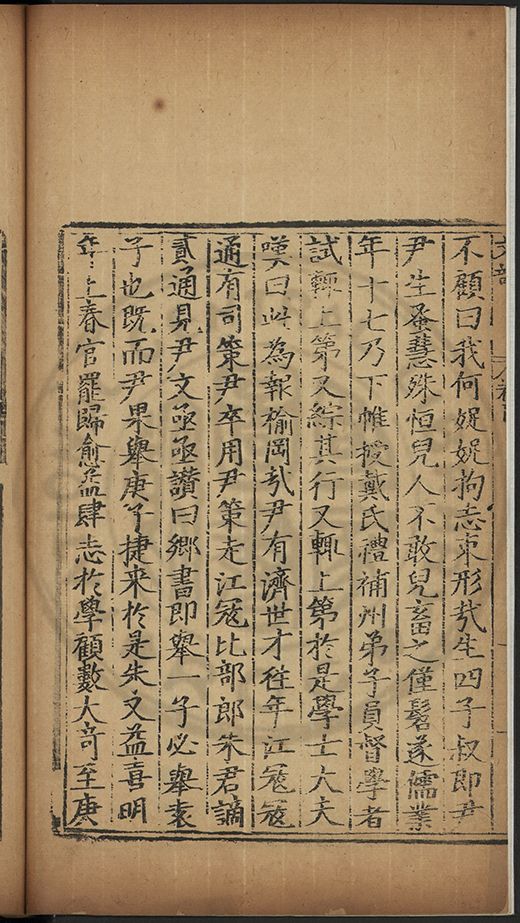 不顧曰我何娖娖拘志束形㢤生四子叔即尹
尹生蚤慧殊恒兒人不敢兒畜之僅髫遂儒業
年十七乃下帷授戴氏禮補州弟子員督學者
試輒上第又綜其行又輒上第於是學士大夫
嘆曰此為報榆岡㢤尹有濟世才往年江寇寇
通有司策尹卒用尹策走江寇比部郎朱君謫
貳通見尹文亟亟讚曰鄉書即舉一子必舉袁
子也既而尹果舉庚子捷来於是朱又益喜明
年上春官罷歸愈益肆志於學顧數大竒至庚